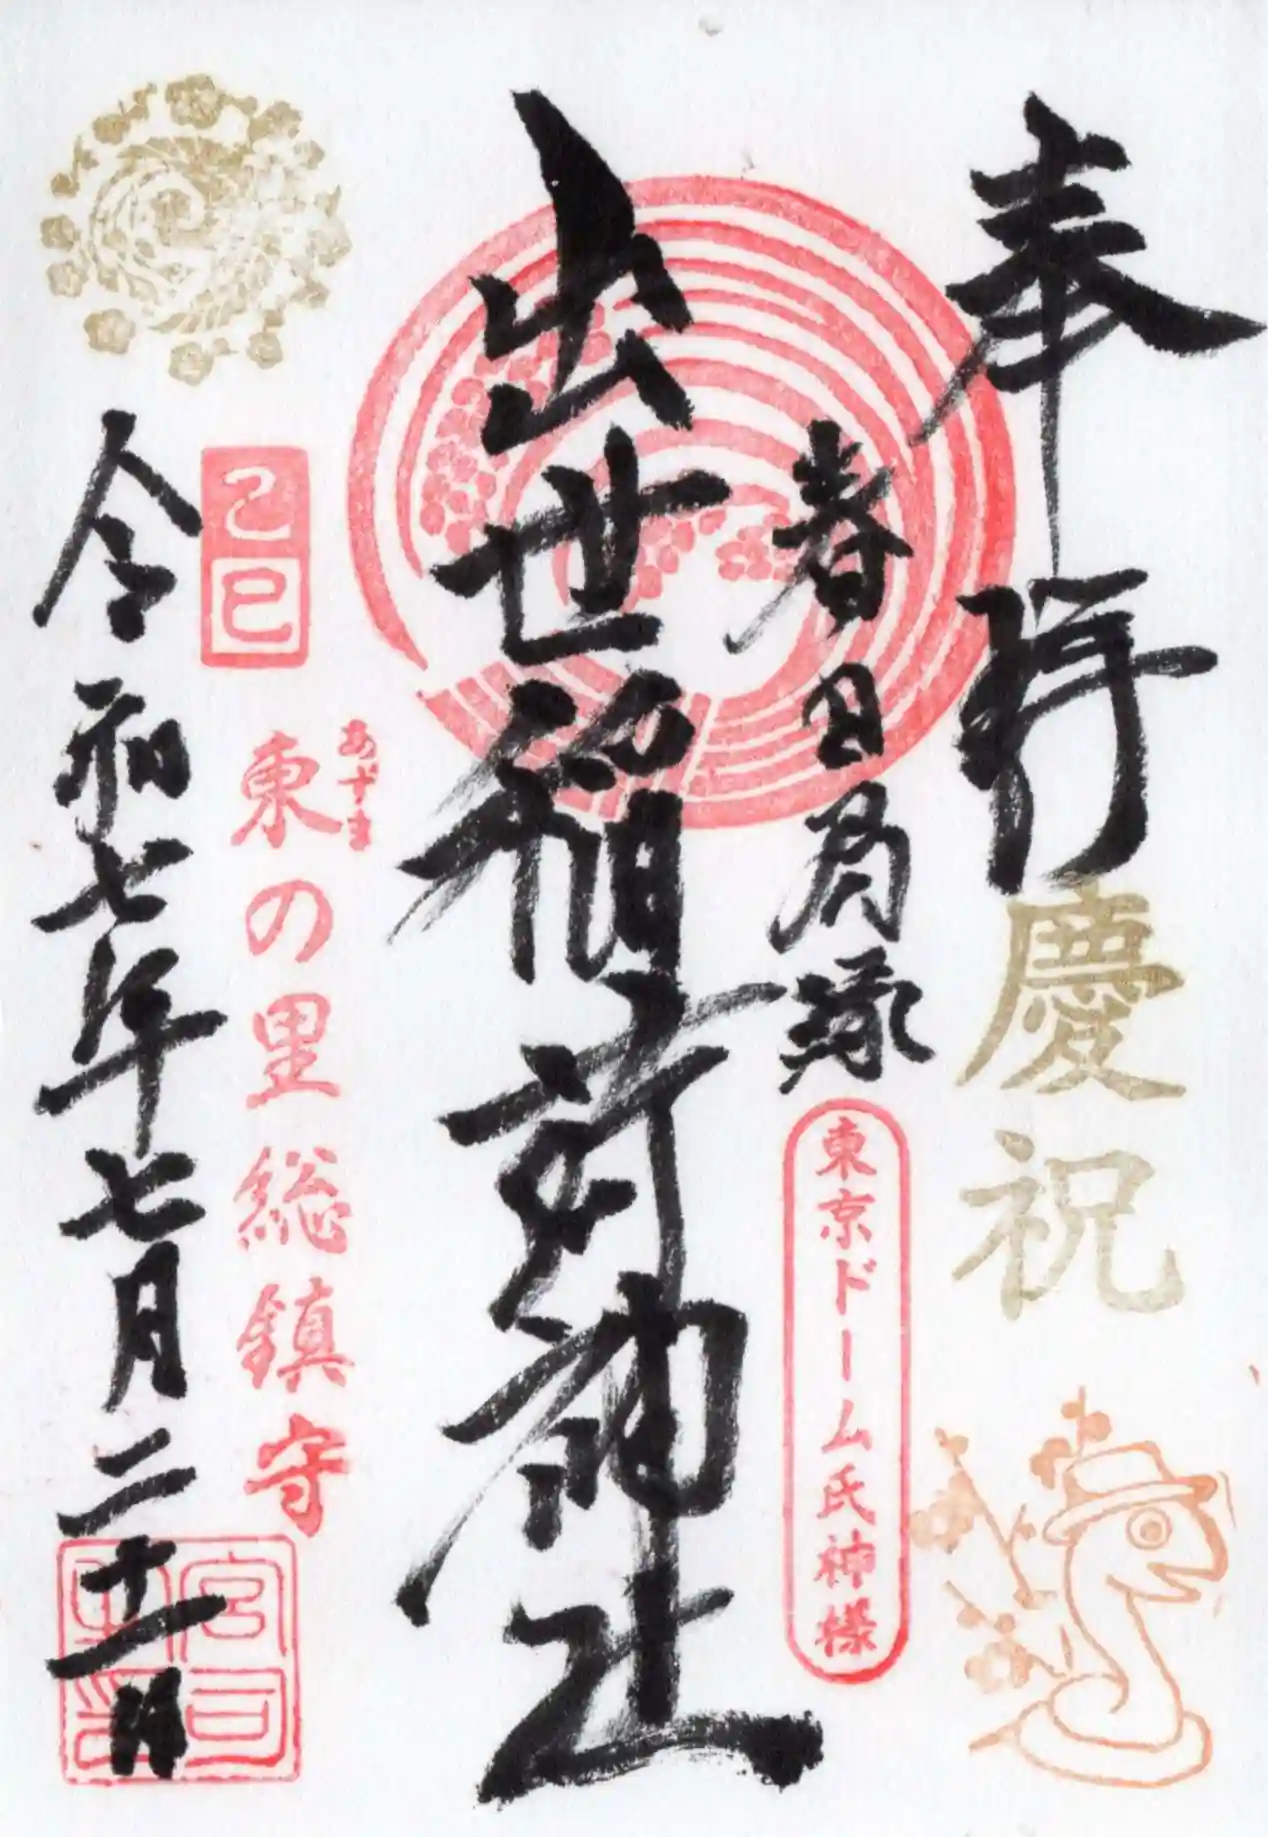 奉拝
慶祝
春日局縁
東京ドーム氏神様
出世稲荷神社
乙巳
あずま
東の里総鎮守
令和七年七月二十一日
宮司